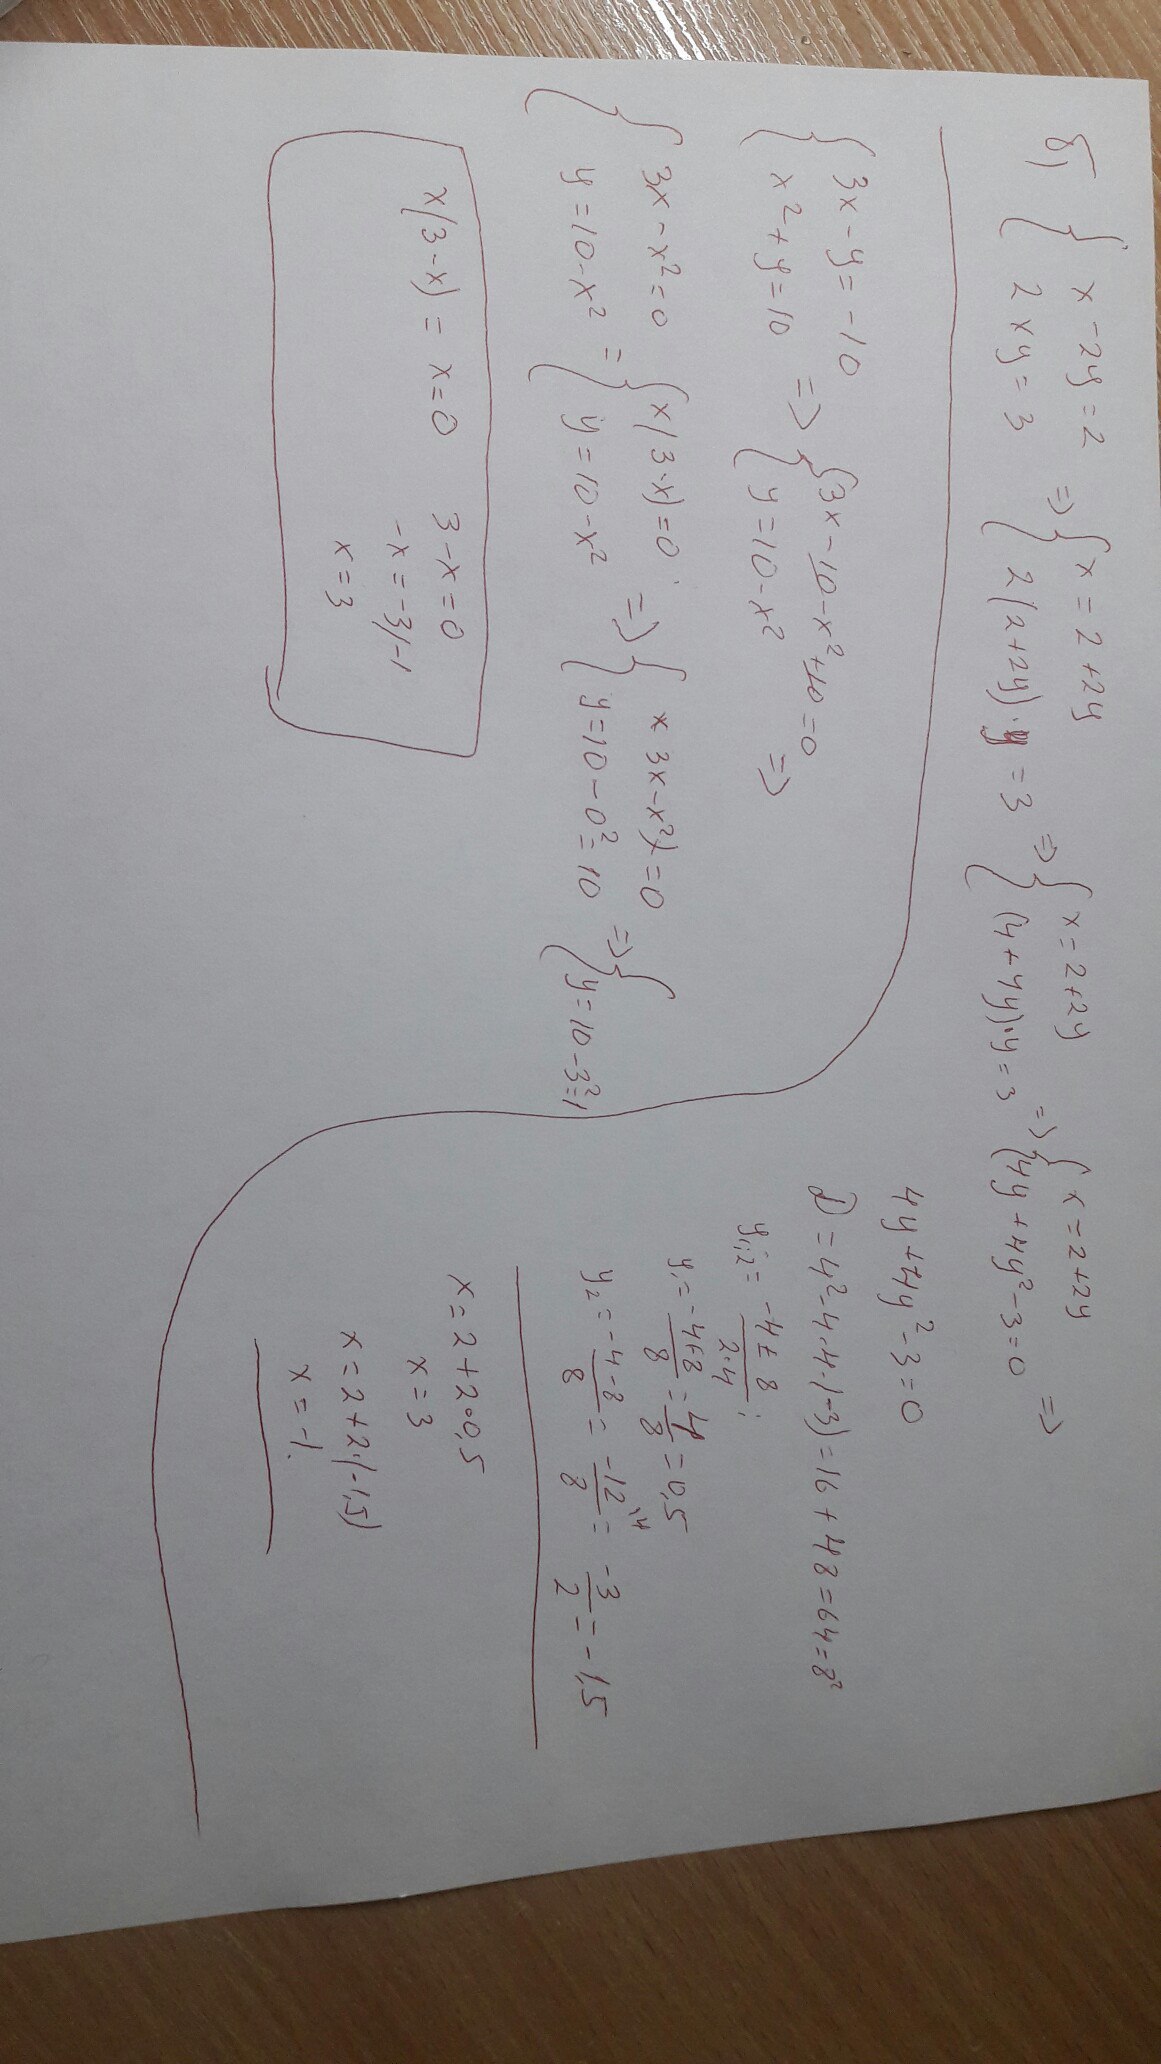 б) { x - 2y = 2 => { x = 2 + 2y => { x = 2 + 2y => { x = 2 + 2y
{ 2xy = 3 { 2(2+2y)·y = 3 { (4+4y)·y = 3 { 4y + 4y² - 3 = 0 =>
4y + 4y² - 3 = 0
D = 4² - 4·4·(-3) = 16 + 48 = 64 = 8²
y₁;₂ = -4 ± 8 / 2·4 ;
y₁ = -4+8 / 8 = 4/8 = 0,5
y₂ = -4-8 / 8 = -12 / 8 = -3/2 = -1,5
x = 2 + 2·0,5
x = 3
x = 2 + 2·(-1,5)
x = -1.
{ 3x - y = -10 => { 3x - 10 - x² + 10 = 0 =>
{ x² + y = 10 { y = 10 - x²
{ 3x - x² = 0 = { x(3-x) = 0 => { x 3x - x²) = 0 => {
{ y = 10 - x² { y = 10 - x² { y = 10 - 0² = 10 { y = 10 - 3² = 1
x(3-x) = x = 0 3 - x = 0
-x = -3/-1
x = 3